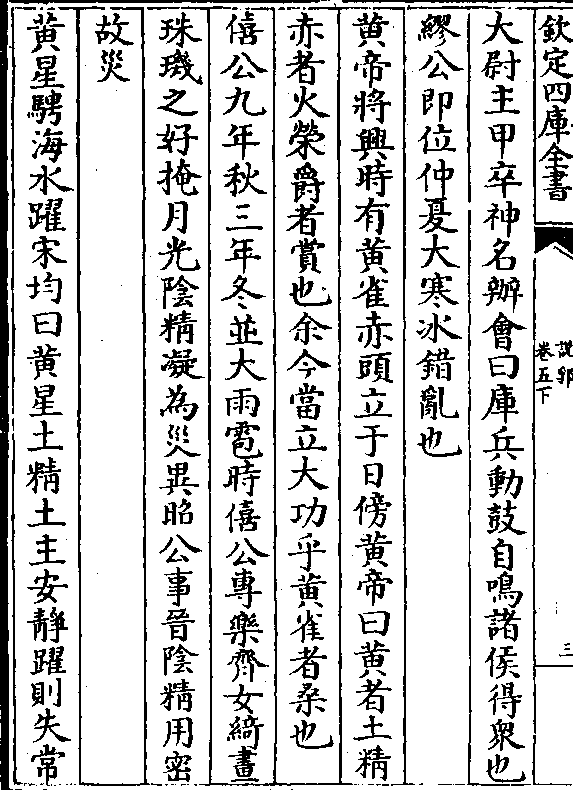 欽定四庫全書
說郛
卷五下
三
大尉主甲卒神名辦會曰庫兵動鼓自鳴諸侯得衆也
繆公即位仲夏大寒冰錯亂也
黄帝將興時有黄雀赤頭立于日傍黄帝曰黄者土精
赤者火榮爵者賞也余今當立大功乎黄雀者桑也
僖公九年秋三年冬並大雨雹時僖公專樂齊女綺畫
珠璣之好掩月光陰精凝為災異昭公事晉陰精用密
故災
黃星騁海水躍宋均曰黄星土精土主安靜躍則失常